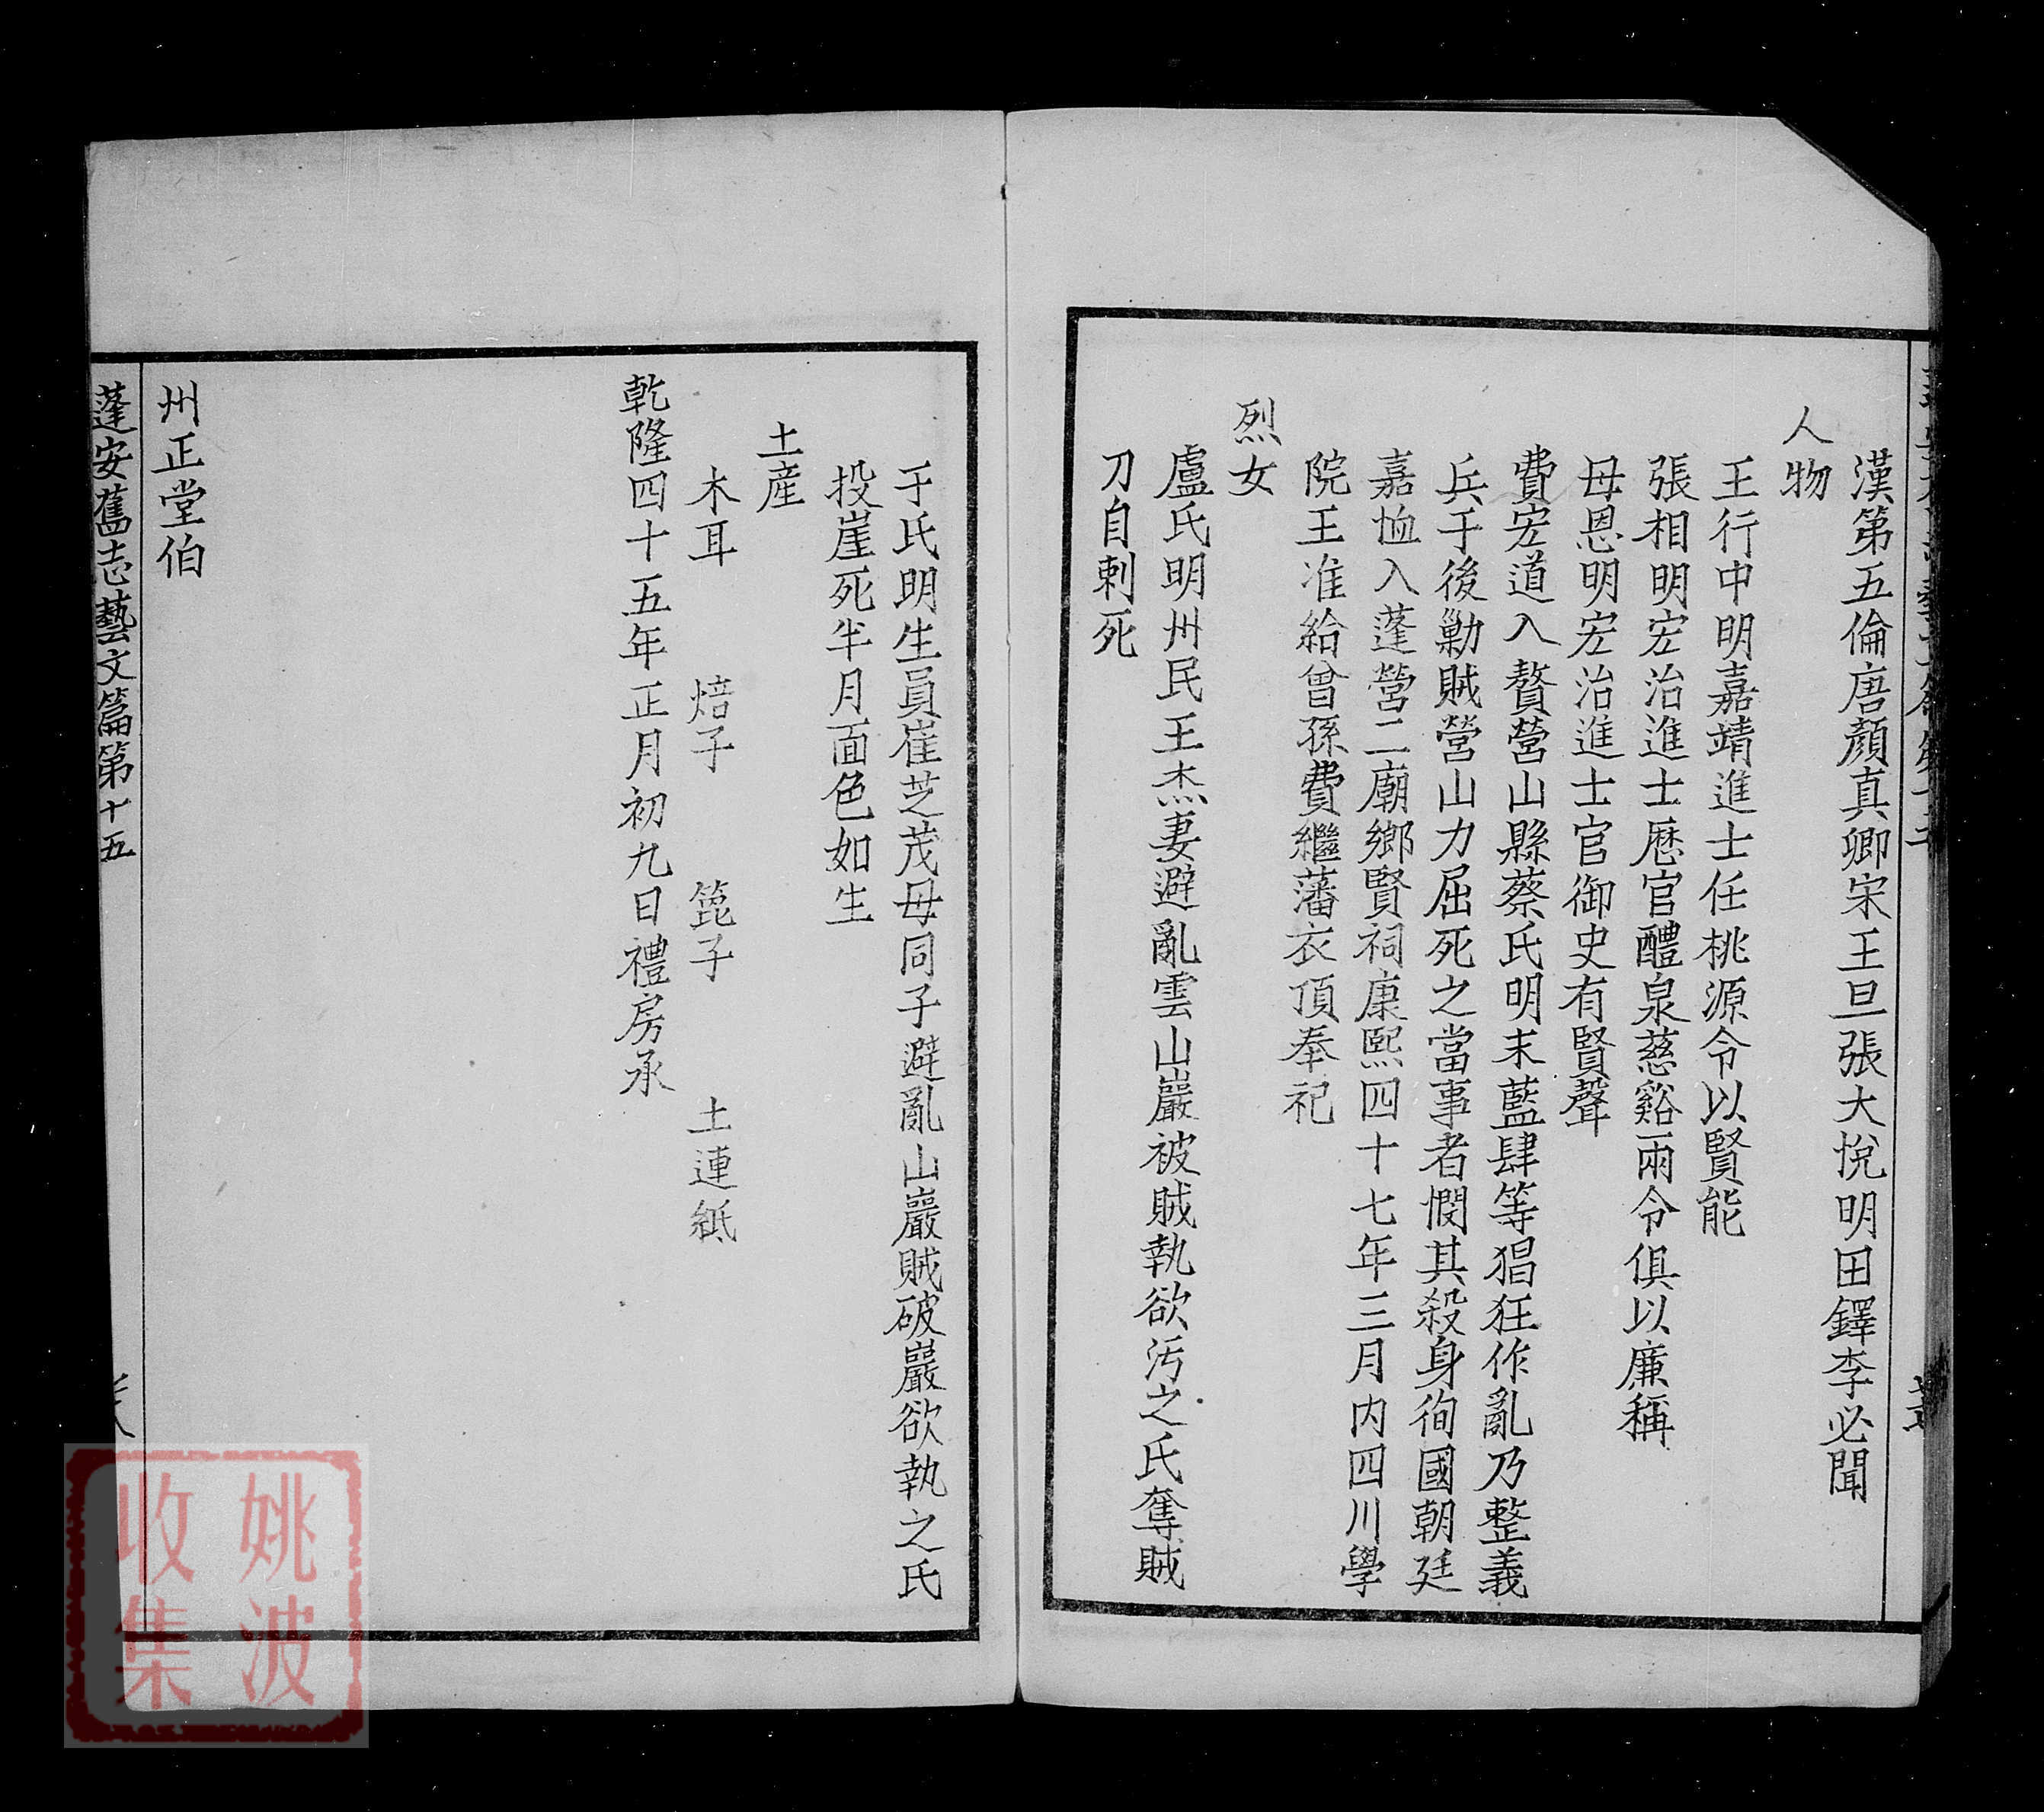 漢第五倫唐顏真卿宋王旦張大悅明田鐸李必聞
人物
王行中明嘉靖進士任桃源令以賢能
張相明宏治進士歷官醴泉慈谿兩令俱以廉稱
母恩明宏治進士官御史有賢聲
費宏道入贅營山縣蔡氏明末藍肆等猖狂作亂乃整義
兵于後勦賊營山力屈死之當事者憫其殺身徇國朝廷
嘉恤入蓬營二廟鄉賢祠康熙四十七年三月内四川學
院王准給曾孫費繼藩衣頂奉祀
烈女
盧氏明州民王杰妻避亂雲山巖被賊執欲污之氏奪賊
刀自剌死
于氏明生員崔芝茂母同子避亂山巖賊破巖欲執之氏
投崖死半月面色如生
土産
木耳 焙子 箆子 土連紙
乾隆四十五年正月初九日禮房承
州正堂伯
蓬安舊志藝文篇第十五
姚波
收集